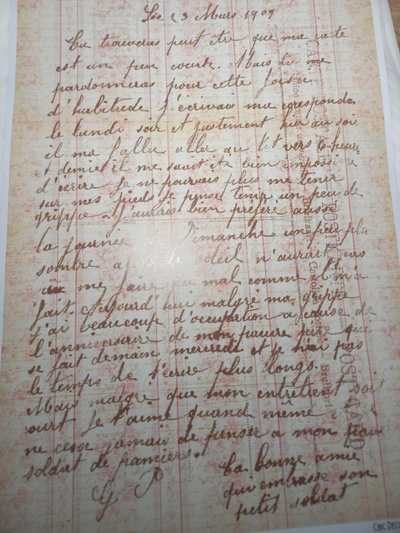 23 Mars 1909
Tu trouveras peut être que ma carte
est un peu courte. Mais tu me
pardonneras pour cette fois
d'habitude j'écrivais ma
le lundi soir et justement hier au soir
il ma fallu aller au lit vers 6 heures
et demie il me bien impossible
d'écrire je ne pouvais plus me tenir
sur mes pieds je pense tenir un peu de
grippe. J'aurais bien préféré
la journée Dimanche un peu plus
sombre le soleil n'aurait pas
me faire mal comme il m'a
fait. Aujourd'hui malgré ma grippe
j'ai beaucoup d'occupation a cause de
l'anniversaire de mon pauvre que
se fait demain mercredi et je n'ai pas
le temps de t'écrire plus longs.
Mais malgré que mon entretient soit
court Je t'aime quand même
ne cesse jamais de penser a mon
soldat de
G. P
Ta bonne amie
qui embrasse son
petit soldat